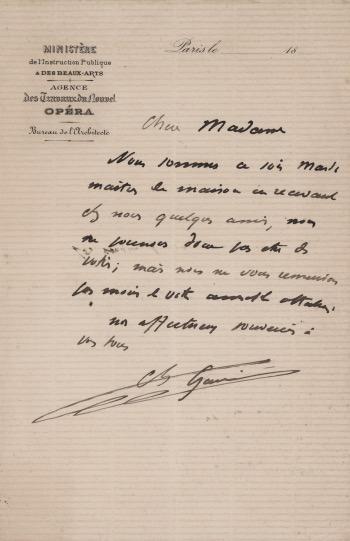 MINISTÈRE
de l'Instruction Publique
& DES BEAUX-ARTS
AGENCE
des Travaux du Nouvel
OPÉRA
Bureau de l'Architecte
Paris le 18
Chère Madame
Nous sommes ce soir Mardi
maîtres de maison en recevant
chez nous quelques amis, nous
ne pouvons donc pas être des
vôtres; mais nous ne vous remercions
pas moins de votre aimable
nos affectueux souvenirs à
vous tous
Ch Garnier